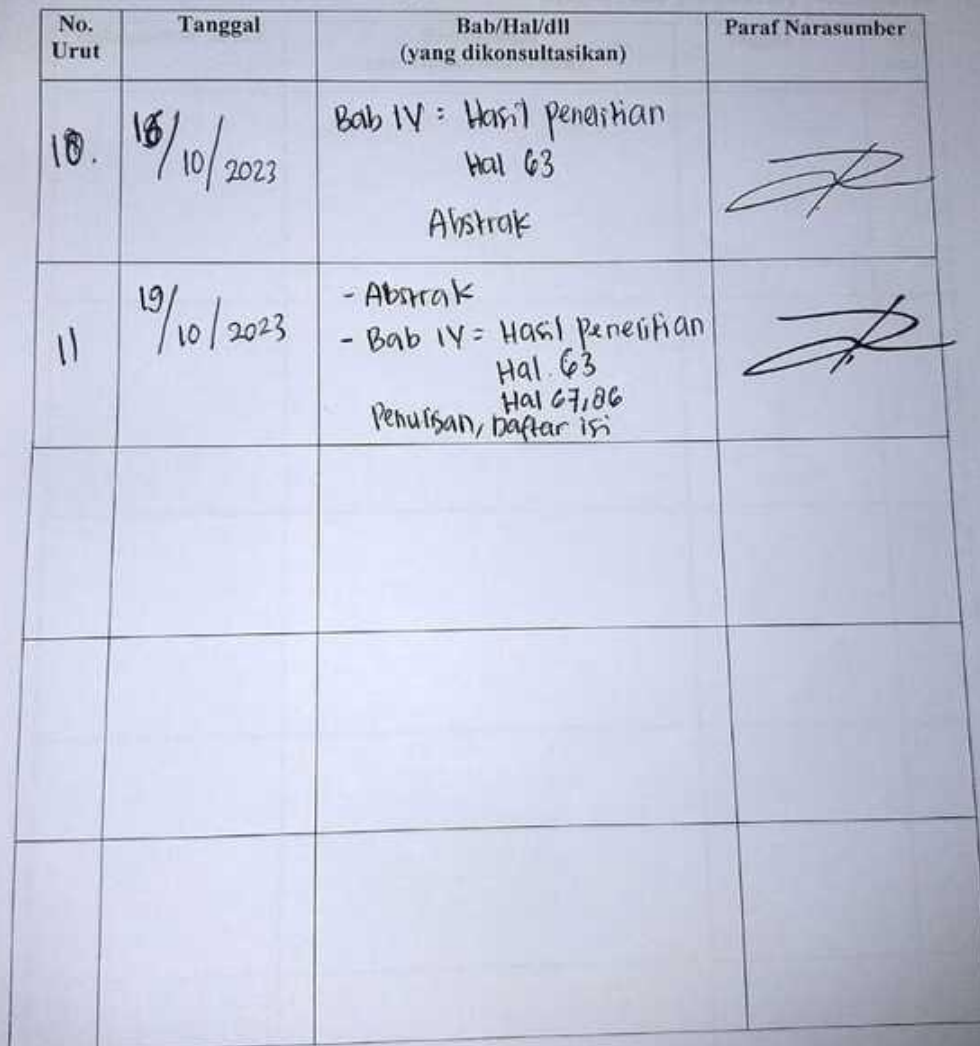 No. Urut
Tanggal
Bab/Hal/dll
(yang dikonsultasikan)
Paraf Narasumber
10.
/10/2023
Bab IV : Hasil penelitian
Hal 63
Abstrak
11
19/10/2023
- Abstrak
- Bab IV = Hasil penelitian
Hal. 63
Hal 67,86
Penulisan, Daftar isi